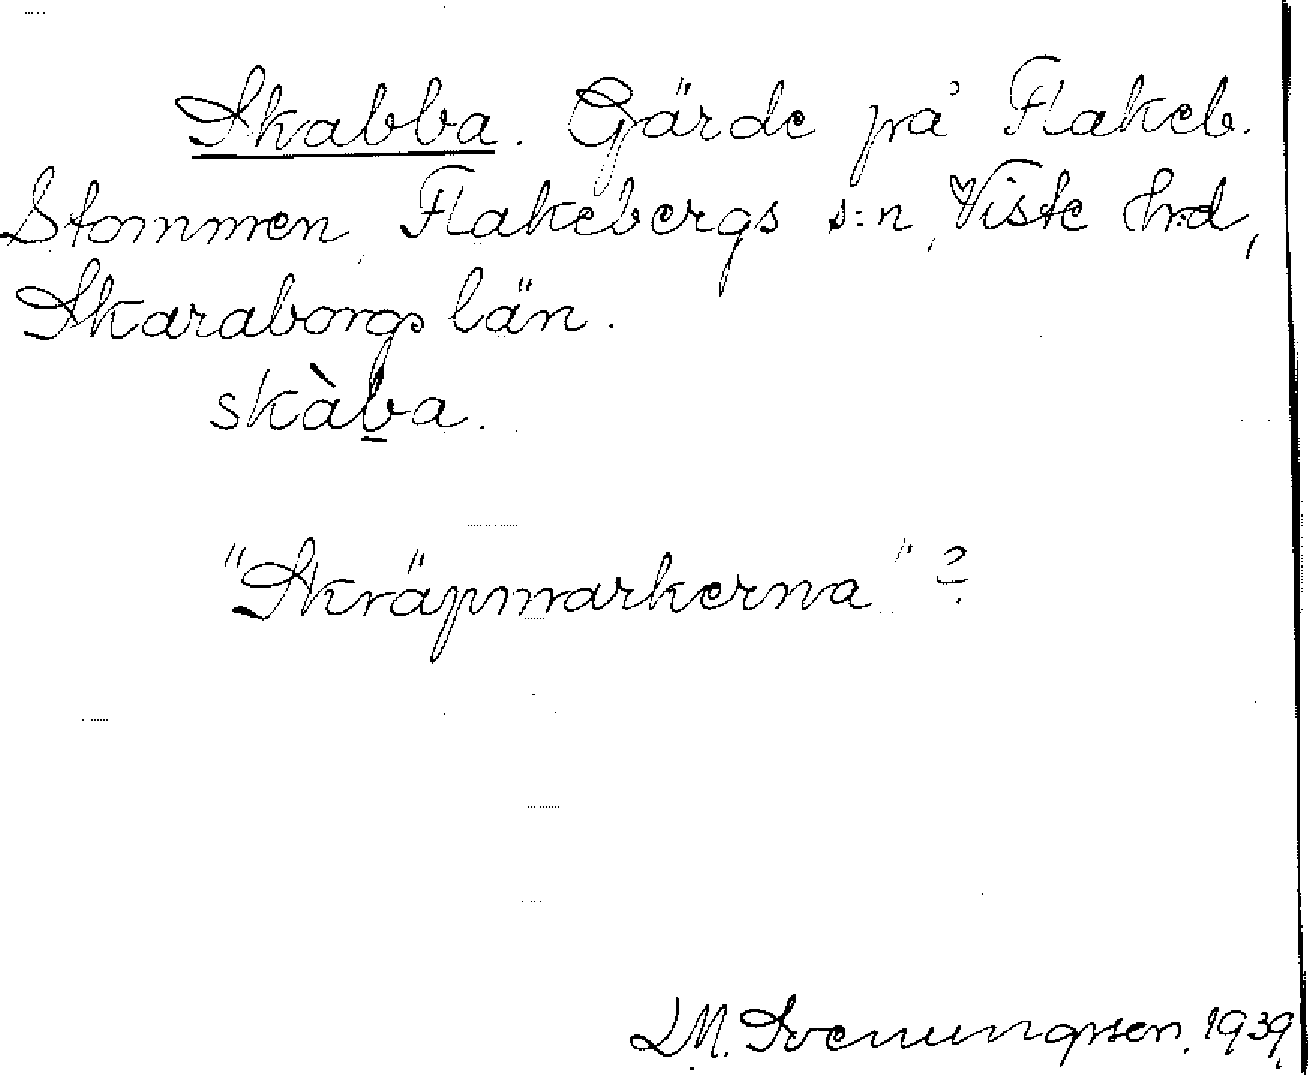 Skabba. Gärde på Flakeb.
Stommen, Flakebergs s:n, Viste hrd,
Skaraborgs län.
skàba.
"Skräpmarkerna"?
D.M. Svenungsson. 1939.